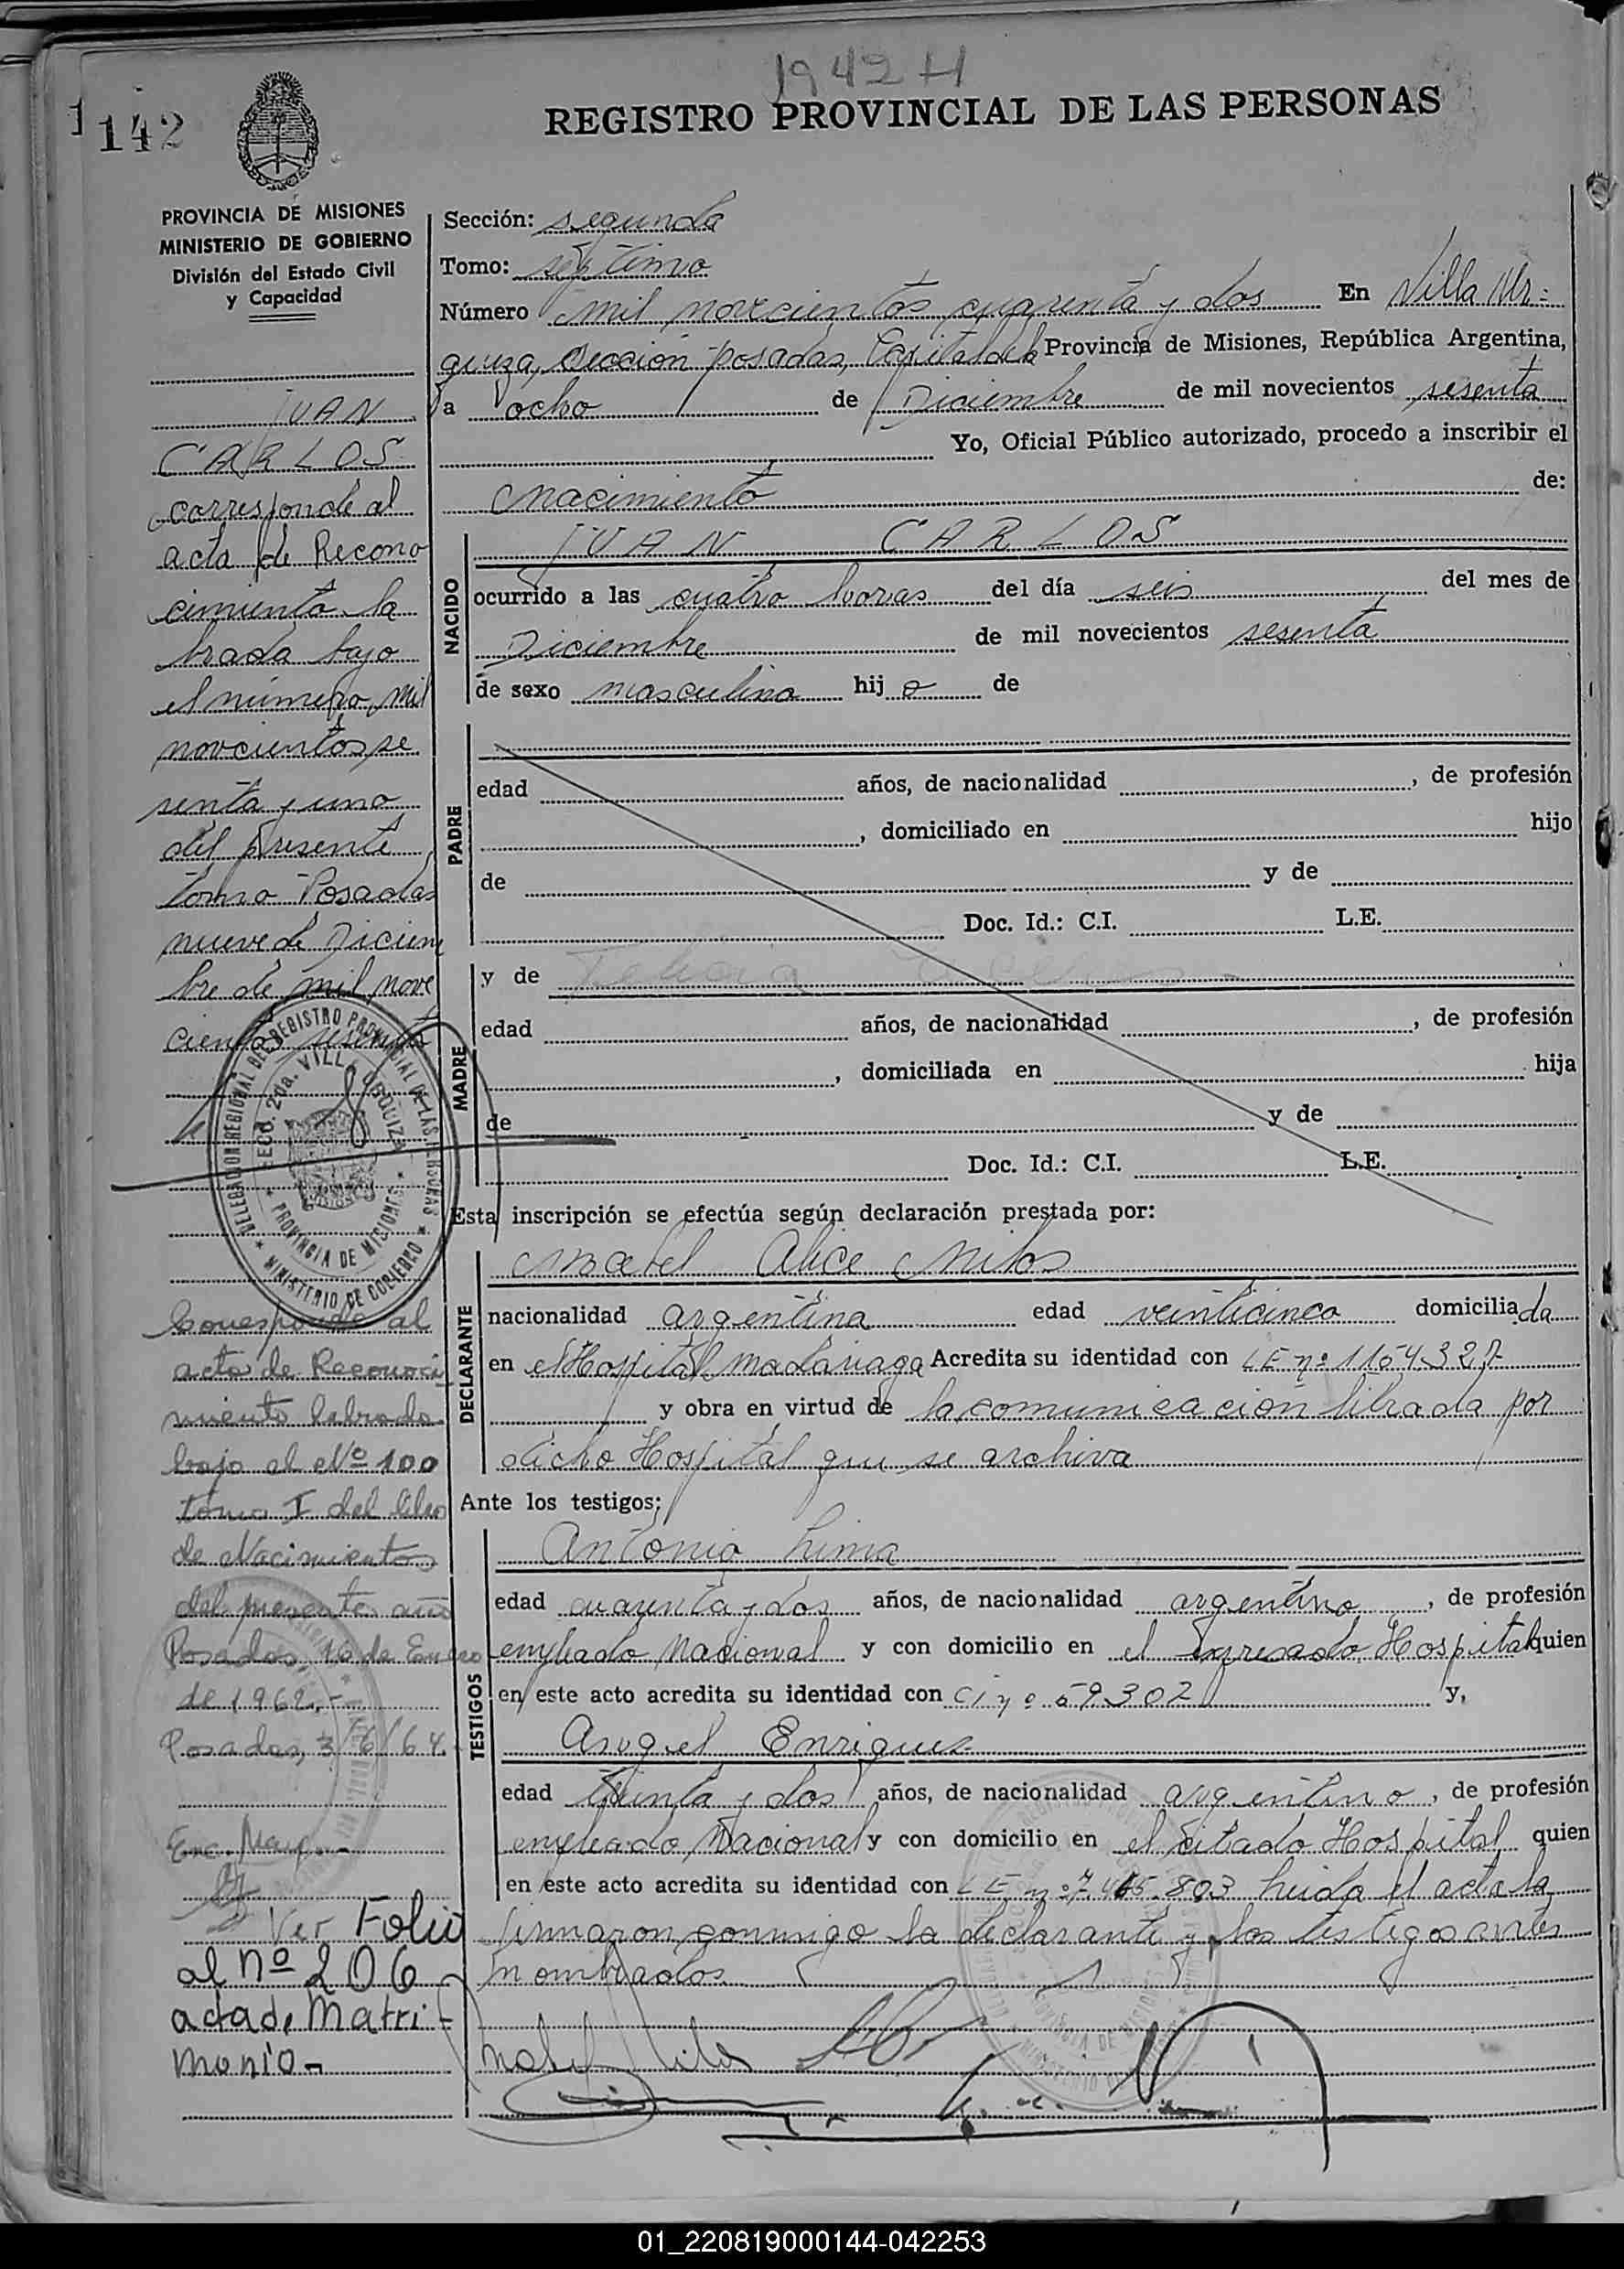 1942 H
1 142
REGISTRO PROVINCIAL DE LAS PERSONAS
PROVINCIA DE MISIONES
MINISTERIO DE GOBIERNO
División del Estado Civil
y Capacidad
JUAN
CARLOS
corresponde al
acta de Recono
cimiento la
brada bajo
el número mil
novecientos se
senta y uno
del presente
tomo Posadas
nueve de Diciem
bre de mil nove
cientos sesenta
DELEGACION REGIONAL DEL REGISTRO PROVINCIAL DE LAS PERSONAS
SECC. 2da. VILLA URQUIZA
PROVINCIA DE MISIONES
MINISTERIO DE GOBIERNO
Corresponde al
acta de Reconoci
miento labrada
bajo el Nº 100
tomo I del libro
de Nacimientos
del presente año
Posadas, 16 de Enero
de 1962.-
Posadas, 3/6/64.
Ver Folio
al nº 206
acta de Matri-
monio-
Sección: segunda
Tomo: séptimo
Número mil novecientos cuarenta y dos En Villa Ur=
quiza, Sección Posadas, Capital de la Provincia de Misiones, República Argentina,
a ocho de Diciembre de mil novecientos sesenta
Yo, Oficial Público autorizado, procedo a inscribir el
nacimiento de:
NACIDO
JUAN CARLOS
ocurrido a las cuatro horas del día seis del mes de
Diciembre de mil novecientos sesenta
de sexo masculino hij o de
PADRE
edad años, de nacionalidad , de profesión
, domiciliado en hijo
de y de
Doc. Id.: C.I. L.E.
MADRE
y de
edad años, de nacionalidad , de profesión
, domiciliada en hija
de y de
Doc. Id.: C.I. L.E.
Esta inscripción se efectúa según declaración prestada por:
DECLARANTE
Mabel Alice Milos
nacionalidad argentina edad veinticinco domiciliada
en el Hospital Madariaga Acredita su identidad con LE nº 1164327
y obra en virtud de la comunicación librada por
dicho Hospital que se archiva
Ante los testigos:
TESTIGOS
Antonio Lima
edad cuarenta y dos años, de nacionalidad argentino, de profesión
empleado Nacional y con domicilio en el expresado Hospital quien
en este acto acredita su identidad con CI nº 59302 y,
Angel Enriquez
edad treinta y dos años, de nacionalidad argentino, de profesión
empleado Nacional y con domicilio en el citado Hospital quien
en este acto acredita su identidad con LE nº 7.465.803 Leida el acta la
firmaron conmigo la declarante y los testigos antes
nombrados
Mabel Milos
01_220819000144-042253